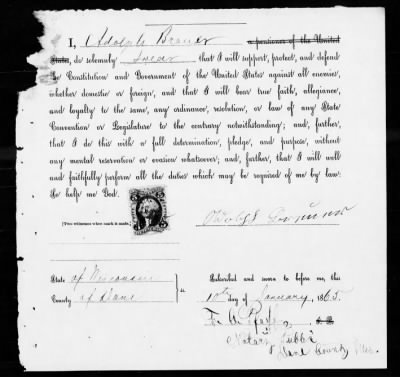 I, Adolph a pensioner of the United
States, do solemnly Swear that I will support, protect, and defend
the Constitution and Government of the United States against all enemies,
whether domestic or foreign, and that I will bear true faith, allegiance,
and loyalty to the same, any ordinance, resolution, or law of any State
Convention or Legislature to the contrary notwithstanding; and, further,
that I do this with a full determination, pledge, and purpose, without
any mental reservation or evasion whatsoever; and, further, that I will well
and faithfully perform all the duties which may be required of me by law:
So help me God.
[Two witnesses when mark is made.]
State of Wisconsin
County of Dane
ss
Subscribed and sworn to before me, this
10th day of January, 1865.
Notary Public
Dane County Wis.